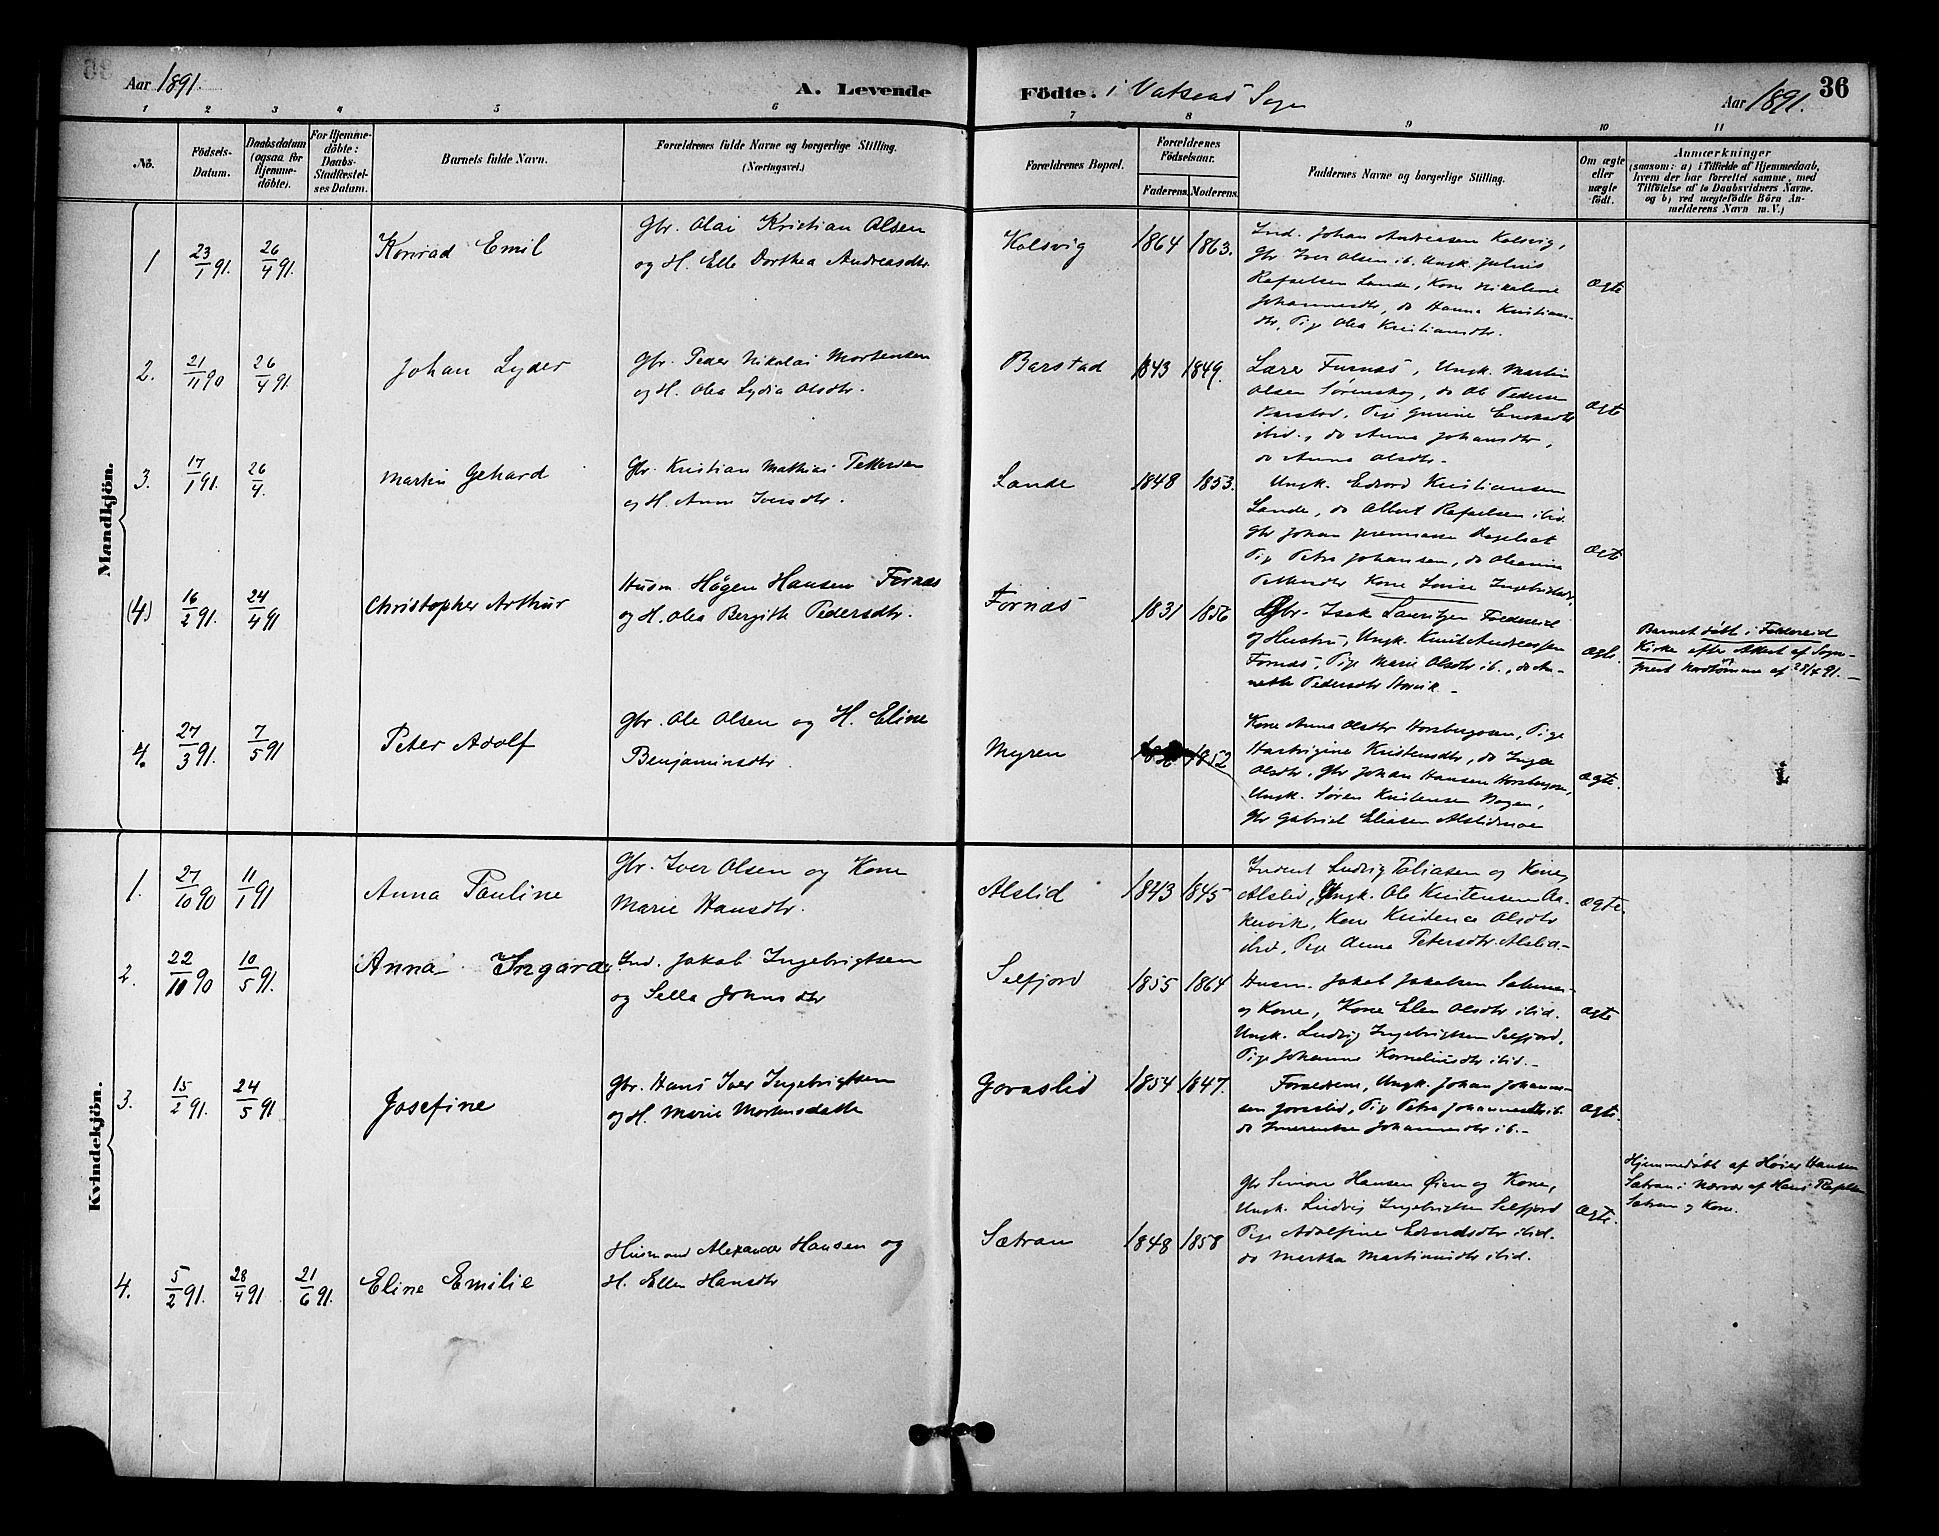 Aar 1891.
A. Levende Födte. i Vatsens Sogn
Aar 1891. 36
1 2 3 4 5 6 7 8 9 10 11
No.
Födsels-Datum.
Daabsdatum (ogsaa for Hjemmedöbte).
For Hjemmedöbte: Daabs-Stadfæstelses Datum.
Barnets fulde Navn.
Forældrenes fulde Navne og borgerlige Stilling. (Næringsvei.)
Forældrenes Bopæl.
Forældrenes Födselsaar.
Faderens. Moderens.
Faddernes Navne og borgerlige Stilling.
Om ægte eller uægte födt.
Anmærkninger
(saasom: a) i Tilfælde af Hjemmedaab, hvem der har forrettet samme, med Tilföielse af to Daabsvidners Navne. og b) ved uægtefödte Börn Anmelderens Navn m. V.)
Mandkjön.
1 23/1 91. 26/4 91. Konrad Emil
Gbr. Olai Kristian Olsen
og H. Elle Dorthea Andreasdtr
Kolsvig 1864 1863.
Ind. Johan Andreasen Kolsvig,
Gbr Iver Olsen ib. Ungk. Julius
Rafaelsen Sande, Kone Nikoline
Johannesdtr, do Hanna Kristians-
dtr, Pige Olea Kristiansdtr.
Ægte
2. 21/11 90 26/4 91. Johan Lyder
Gbr. Peder Nikolai Mortensen
og H. Olea Lydia Olsdtr.
Barstad 1843 1849.
Lærer Furnæs, Ungk. Martin
Olsen Sørenskog, do Ole Pedersen
Barstad, Pige Gurine Enoksdtr
ibid., do Anna Johansdtr,
do Anna Olsdtr.
Ægte
3. 17/1 91. 26/4. Martin Gehard
Gbr. Kristian Mathias Pettersen
og H. Anna Iversdtr.
Sande 1848 1853.
Ungk. Edvard Kristiansen
Sande, do Albert Rafaelsen ibid.
Gbr Johan Jeremiassen
Pige Petra Johansen, do Oleanna
Pettersdtr Kone Lovise Ingebrigtsdtr,
Ægte
(4) 16/2 91. 24/4 91 Christopher Arthur
Husm. Høgen Hansen Fornæs
og H. Olea Bergitte Pedersdtr.
Fornæs 1831 1856
Gbr. Isak Lauritzen Foldereid
og Hustru, Ungk. Knut Andreassen
Fornæs, Pige Marie Olsdtr ib., do An-
nette Pedersdtr Storvik.
ægte.
Barnet döbt i Foldereid
Kirke efter Attest af Sogn-
prest Nordtömme af 28/4 91.
4. 27/3 91. 7/5 91 Peter Adolf
Gbr. Ole Olsen og H. Eline
Benjaminsdtr.
Myren 1852
Kone Anna Olsdtr Horsbergsøen, Pige
Hartvigine Kristensdtr, do Inga
Olsdtr, Gbr Johan Hansen Horsbergsøen,
Ungk. Søren Kristensen Bogen,
Gbr Gabriel Eliasen Alslidmoe
ægte.
Kvindekjön.
1. 27/10 90 11/1 91 Anna Pauline
Gbr. Iver Olsen og Kone
Marie Hansdtr.
Alslid 1843 1845
Inderst Ludvig Toliasen og Kone
Alslid, Ungk. Ole Kristensen Aa-
kervik, Kone Kristence Olsdtr
ibid, Pige Anna Petersdtr Alslid
ægte.
2. 22/10 90 10/5 91. Anna Ingarda
Ind. Jakob Ingebrigtsen
og Sella Johnsdtr
Selfjord 1855 1864
Husm. Jakob Jakobsen
og Kone, Kone Elen Olsdtr ibid.
Ungk. Ludvig Ingebrigtsen Selfjord,
Pige Johanna Korneliusdtr ibid.
ægte
3. 15/2 91. 24/5 91 Josefine
Gbr. Hans Iver Ingebrigtsen
og H. Marie Mortensdatter
Gorraslid 1854 1847.
Forældrene, Ungk. Johan Johann-
sen Joraslid, Pige Petra Johannesdtr ib.
do Johannesdtr ib.
ægte.
4. 5/2 91. 28/4 91 21/6 91. Eline Emilie
Husmand Alexander Hansen og
H. Ellen Hansdtr
Sætran 1848 1858
Gbr Simon Hansen Øien og Kone,
Ungk. Ludvig Ingebrigtsen Selfjord
Pige Adolfine Edvardsdtr ibid.
do Martha Martinusdtr ibid.
ægte.
Hjemmedöbt af Høier Hansen
Sætran i Nærvær af Hans
Sætran og Kone.